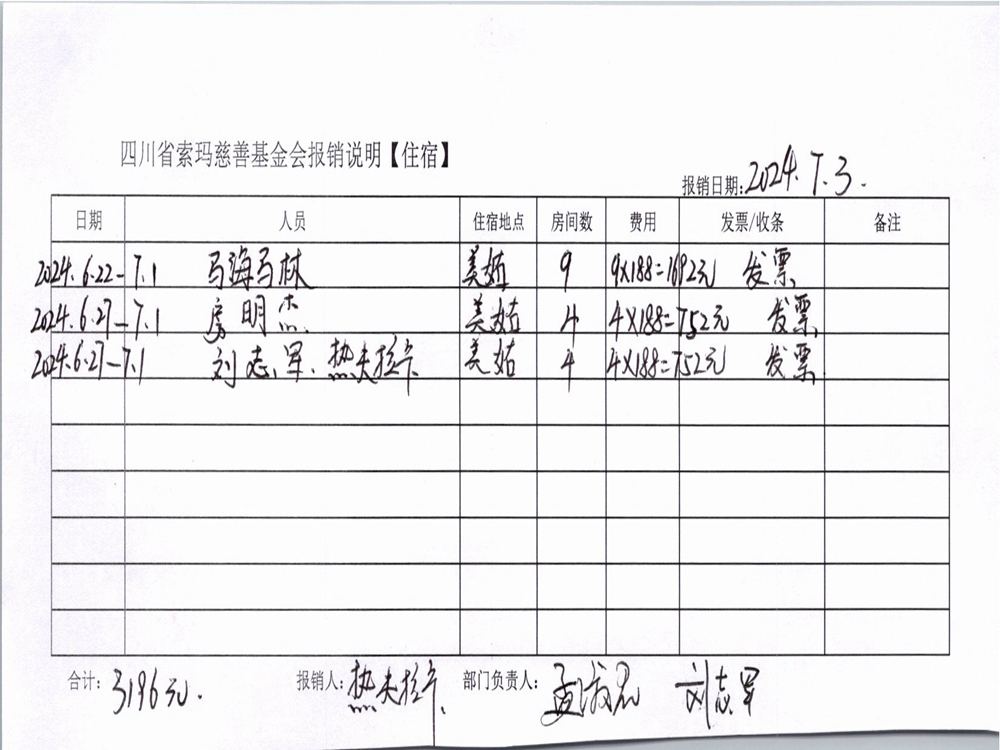 四川省索玛慈善基金会报销说明【住宿】
报销日期:2024.7.3.
日期 人员 住宿地点 房间数 费用 发票/收条 备注
2024.6.22-7.1 马海马林 美姑 9 9×188=1692元 发票
2024.6.27-7.1 房明杰 美姑 4 4×188=752元 发票
2024.6.27-7.1 刘志军、热夫拉卡 美姑 4 4×188=752元 发票
合计: 3196元. 报销人: 热夫拉卡 部门负责人: 刘志军